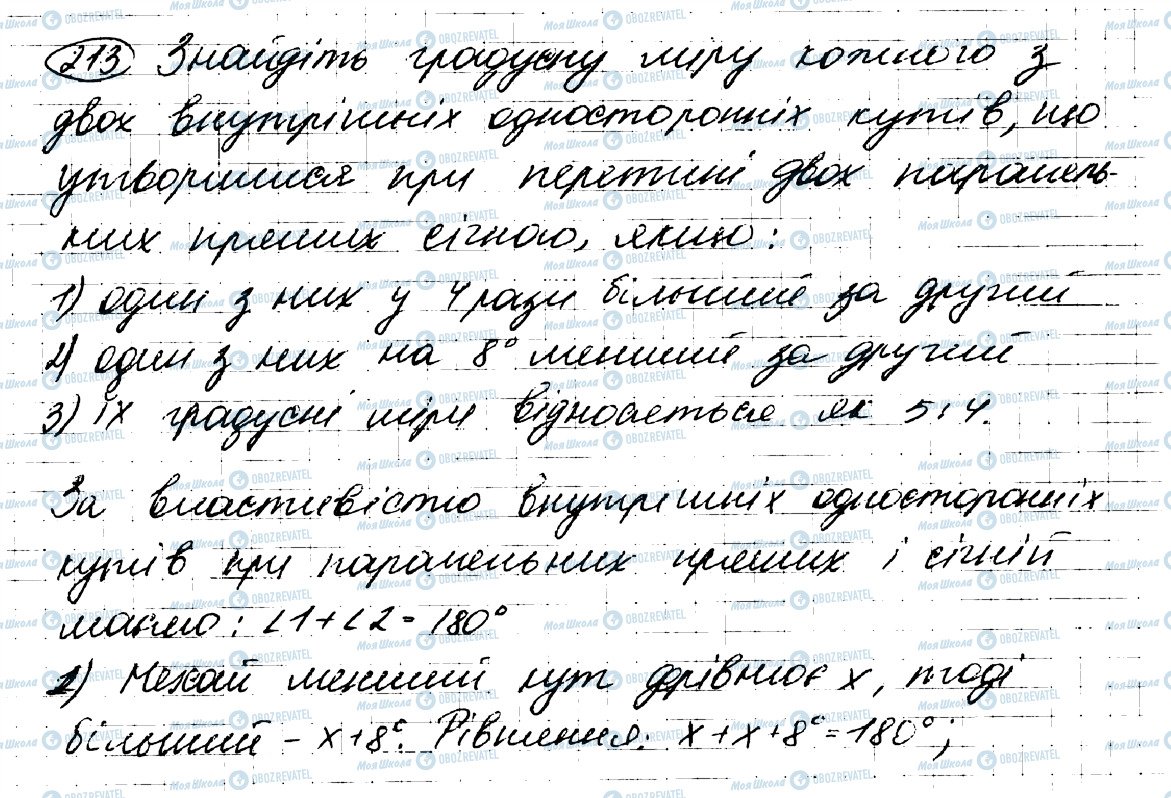 213 Знайдіть градусну міру кожного з
двох внутрішніх односторонніх кутів, що
утворилися при перетині двох паралель-
них прямих січною, якщо:
1) один з них у 4 рази більший за другий
2) один з них на 8° менший за другий
3) їх градусні міри відносяться як 5:4.
За властивістю внутрішніх односторонніх
кутів при паралельних прямих і січній
маємо: ∠1+∠2=180°
2) Нехай менший кут дорівнює x, тоді
більший – x+8°. Рівняння: x+x+8°=180°;